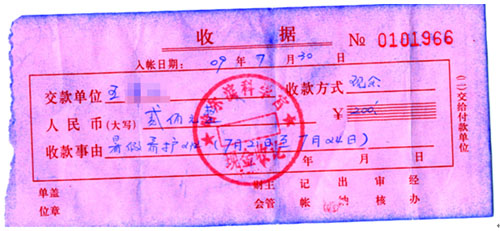 收 据 № 0101966
入帐日期: 09 年 7 月 30 日
交款单位 王 收款方式 现金
人民币(大写) 贰佰元 ¥ 200
收款事由 暑假养护 (7月21日至7月24日)
年 月 日
单盖 财主 记 出 审 经
位章 会管 帐 纳 核 办
(二)交给付款单位
科学宫
现金收讫